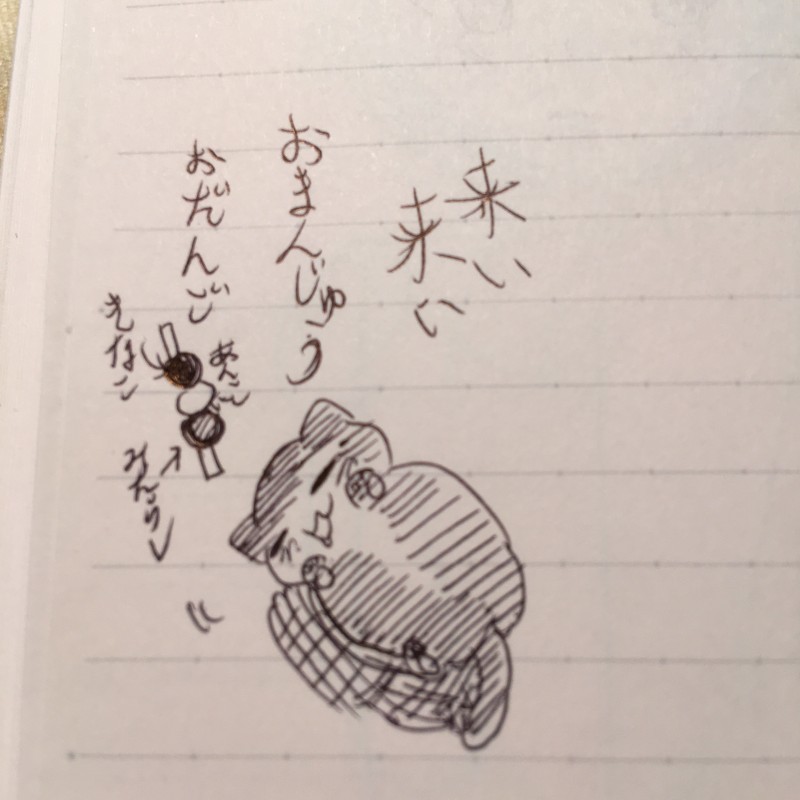 来い
来い
おまんじゅう
おだんご
あんこ
きなこ
みたらし